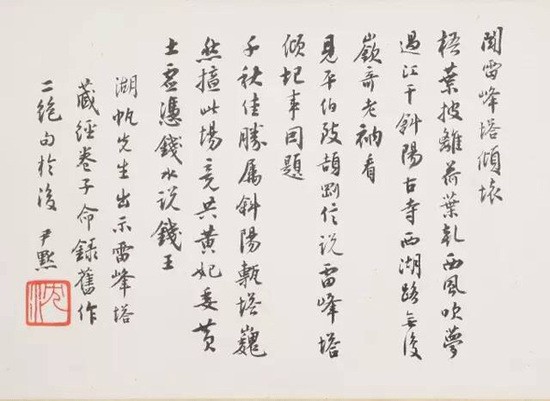 聞雷峰塔傾壞
梧葉披離荷葉乾西風吹夢
過江干斜陽古寺西湖路無復
嶔奇老衲看
見平伯致頡剛信說雷峰塔
傾圮事因題
千秋佳勝屬斜陽甎塔巍
然擅此場竟共黃妃委黃
土虛憑錢水說錢王
湖帆先生出示雷峰塔
藏經卷子命錄舊作
二絕句於後 尹默
沈